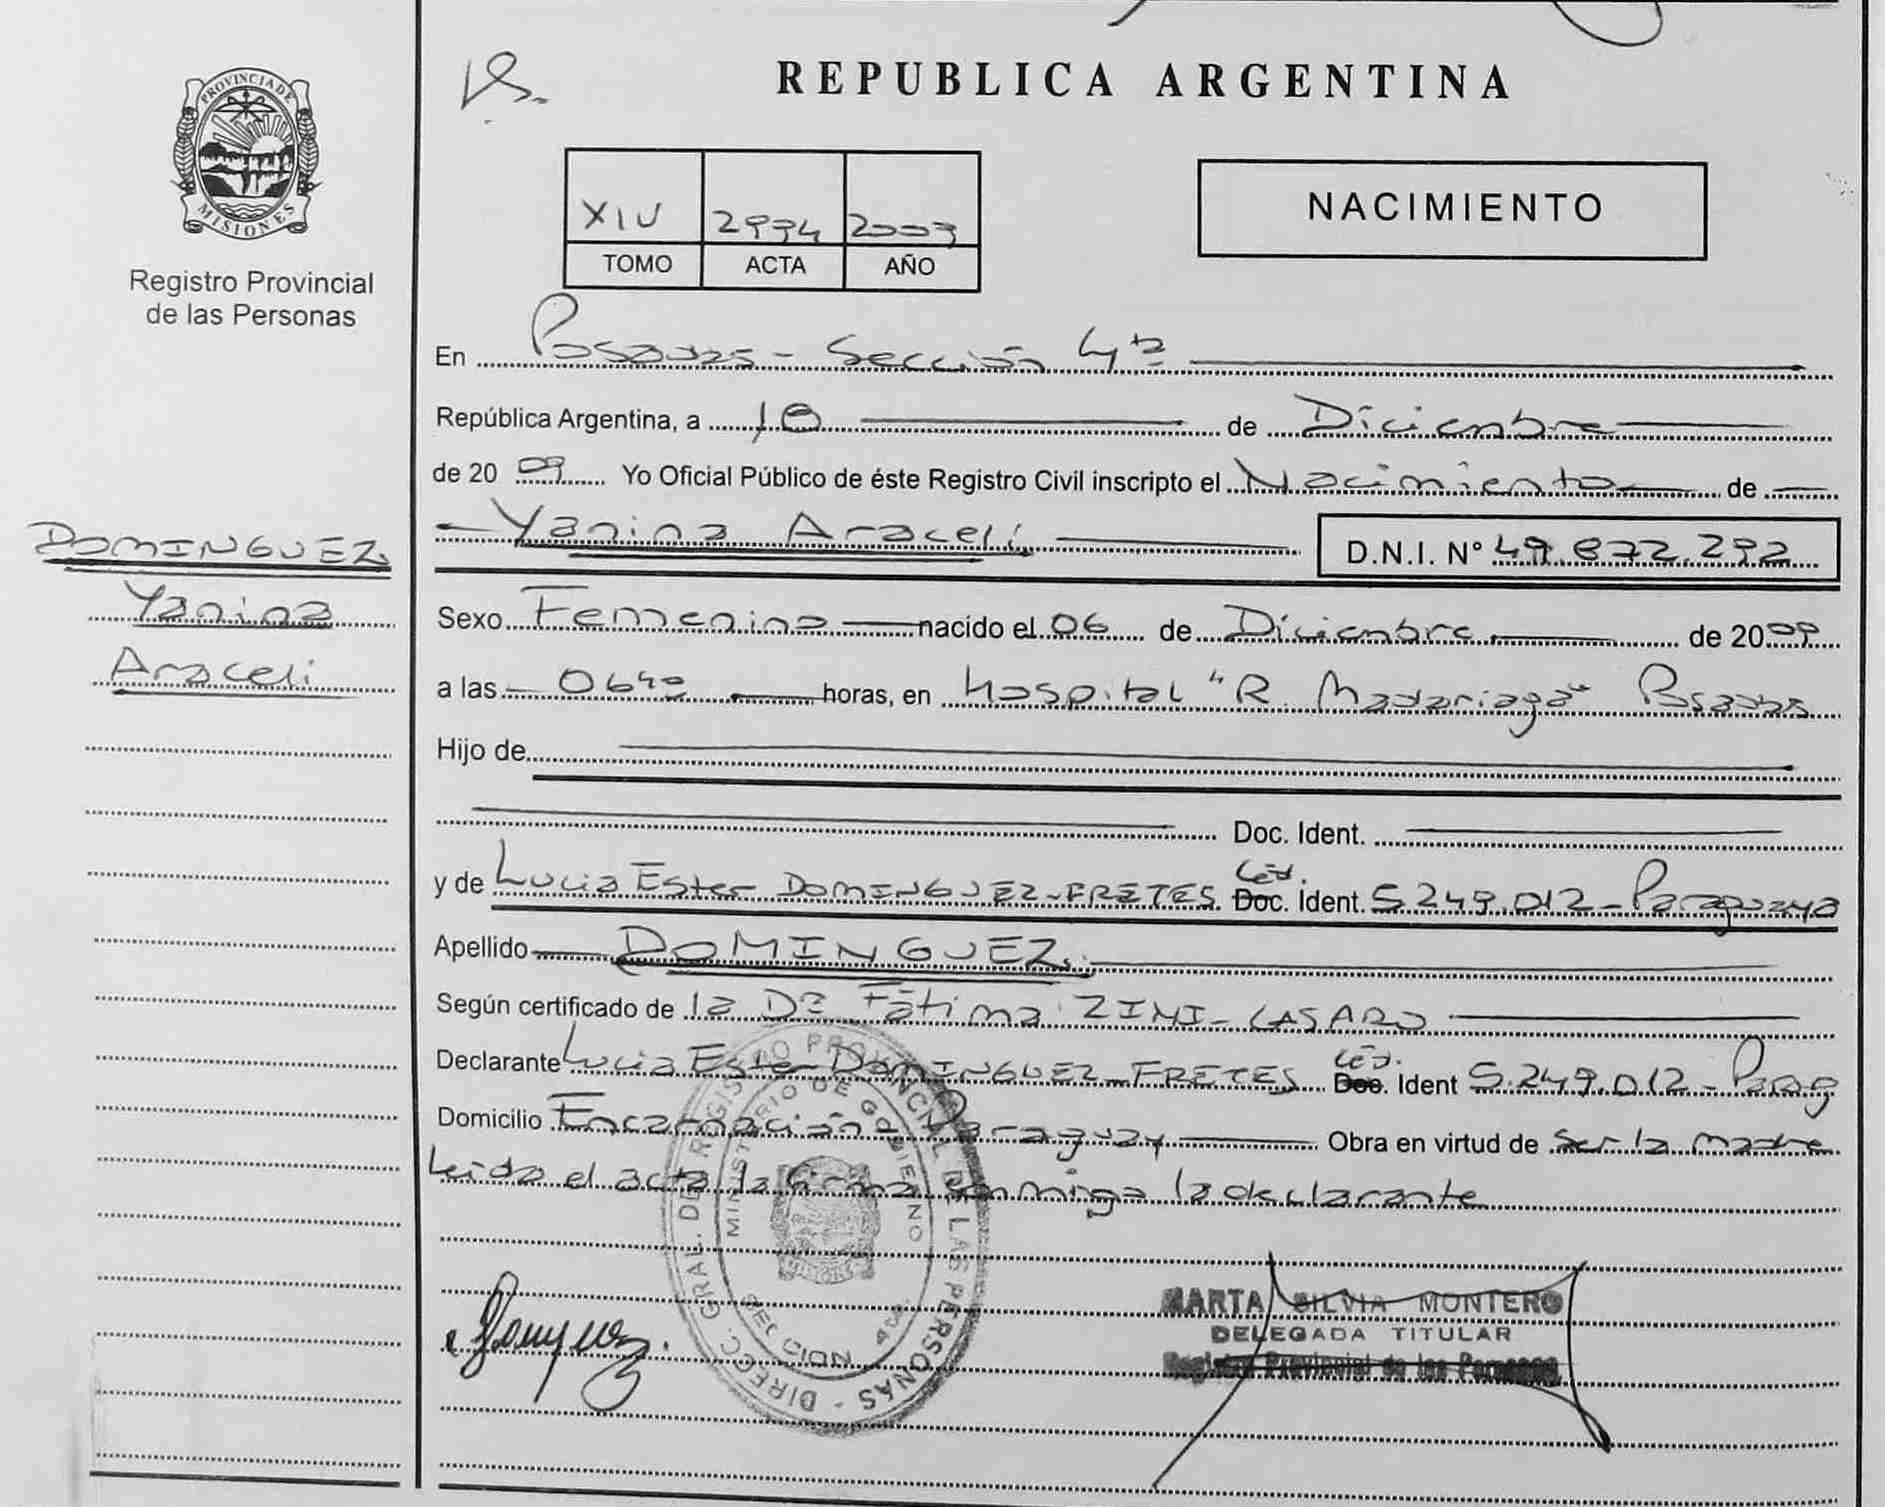 PROVINCIA DE
MISIONES
Registro Provincial
de las Personas
DOMINGUEZ
Yanina
Araceli
REPUBLICA ARGENTINA
XIV 2994 2009
TOMO ACTA AÑO
NACIMIENTO
En Posadas - Sección 4ta
República Argentina, a 10 de Diciembre
de 2009 Yo Oficial Público de éste Registro Civil inscripto el Nacimiento de
Yanina Araceli D.N.I. N° 49.872.292
Sexo Femenino nacido el 06 de Diciembre de 2009
a las 0640 horas, en Hospital "R. Madariaga" Posadas
Hijo de
Doc. Ident.
y de Lucia Ester DOMINGUEZ-FRETES Céd. Doc. Ident. 5.249.012 - Paraguaya
Apellido DOMINGUEZ
Según certificado de la Dra Fátima ZINI-CASARO
Declarante Lucia Ester DOMINGUEZ-FRETES Céd. Doc. Ident 5.249.012 - Parag
Domicilio Encarnación Paraguay Obra en virtud de ser la madre
Leida el acta la firma conmigo la declarante
DIRECC. GRAL. DE REGISTRO PROVINCIAL DE LAS PERSONAS
MINISTERIO DE GOBIERNO
SECCION 4
MARTA SILVIA MONTERO
DELEGADA TITULAR
Registro Provincial de las Personas